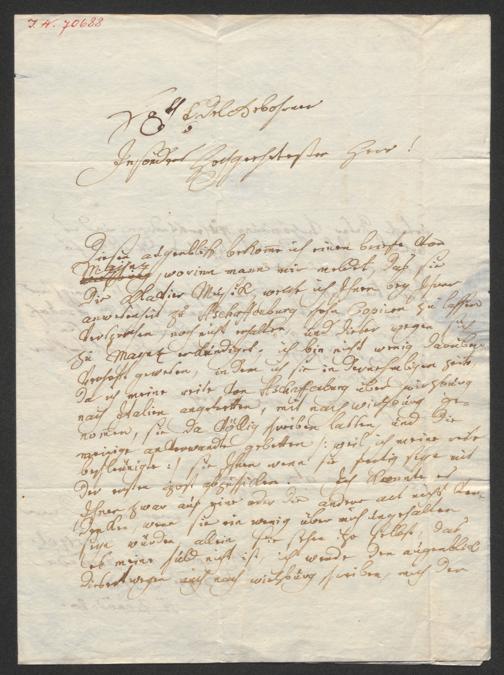 I. N. 70688
Edelgebohrner
Insonders Hochgeehrtester Herr!
Diesen augenblick bekomme ich einen brieff von
Maintz, worinn mann mir meldet, daß sie
die Klavier Musik, welch ich Ihnen bey Ihrer
anwesenheit zu Aschaffenburg habe copieren zu lassen
versprochen noch nicht erhalten, und sich
zu Maintz erkundiget, ich bin nicht wenig darüber
gewesen, indem ich sie in der nehmlichen zeit
da ich meine reise von Aschaffenburg über würzburg
nach Italien angetretten, mit nach würzburg ge-
nomen, sie da völlig schreiben lassen, und die
meinige anverwandte gebetten: weil ich meine reise
beschleunigte: sie Ihnen wenn sie fertig seye mit
der ersten post zu schicken. Ich könnte es
Ihnen zwar auf eine oder die andere art nicht ver-
dencken, wenn sie ein wenig über mich ungehalten
seyn würden allein sie sehen selbst, daß
es meine schuld nicht ist, ich werde den augenblick
dieserwegen auch nach würzburg schreiben, auch den